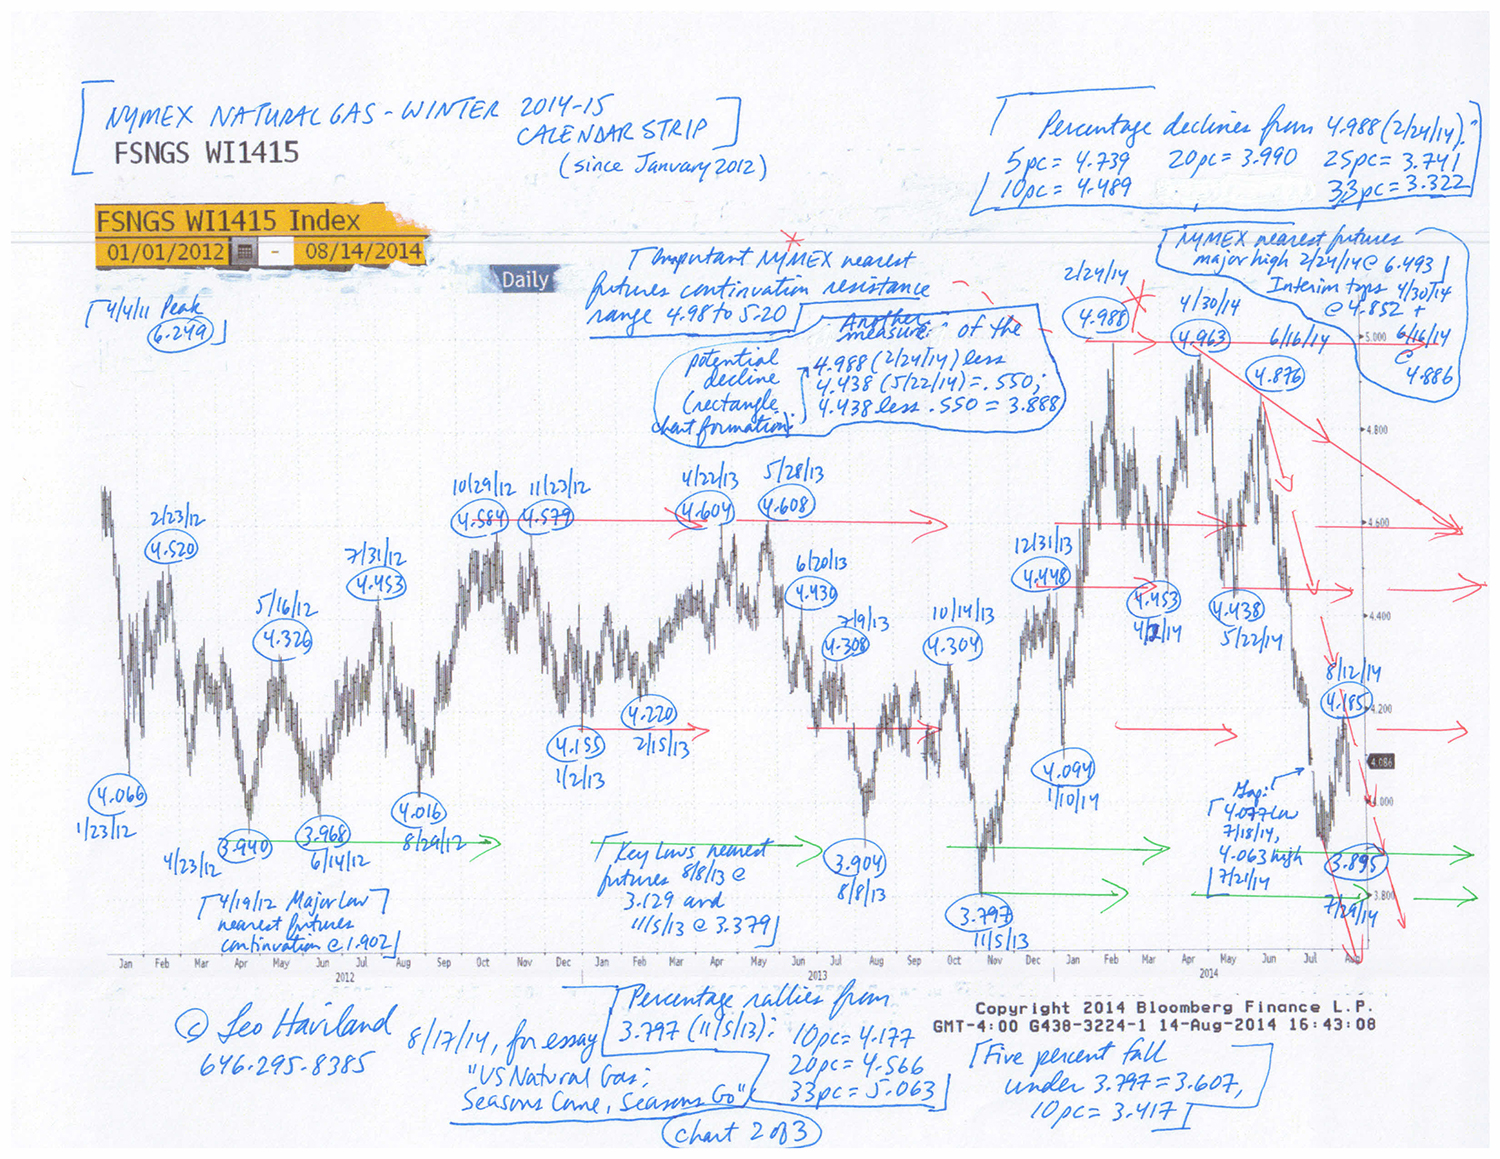 NYMEX NATURAL GAS - WINTER 2014-15
CALENDAR STRIP
(since January 2012)
FSNGS WI1415
FSNGS WI1415 Index
01/01/2012 - 08/14/2014
Daily
Percentage declines from 4.988 (2/24/14):
5pc = 4.739 20pc = 3.990 25pc = 3.741
10pc = 4.489 33pc = 3.322
Important NYMEX nearest
futures continuation resistance
range 4.98 to 5.20
NYMEX nearest futures
major high 2/24/14 @ 6.493
Interim tops 4/30/14
@ 4.852 +
6/16/14
@
4.886
4/4/11 Peak
6.249
Another
"measure" of the
potential
decline
(rectangle
chart formation):
4.988 (2/24/14) less
4.438 (5/22/14) = .550;
4.438 less .550 = 3.888
2/24/14
4.988
4/30/14
4.963
6/16/14
4.876
2/23/12
4.520
5/16/12
4.326
7/31/12
4.453
10/29/12
4.584
11/23/12
4.579
4/22/13
4.604
5/28/13
4.608
6/20/13
4.430
7/9/13
4.308
10/14/13
4.304
12/31/13
4.448
4.453
4/2/14
4.438
5/22/14
8/12/14
4.185
4.066
1/23/12
3.940
4/23/12
3.968
6/14/12
4.016
8/29/12
4.155
1/2/13
4.220
2/15/13
3.904
8/8/13
3.797
11/5/13
4.094
1/10/14
Gap:
4.077 low
7/18/14,
4.063 high
7/21/14
3.895
7/29/14
4/19/12 Major Low
nearest futures
continuation @ 1.902
Key Lows nearest
futures 8/8/13 @
3.129 and
11/5/13 @ 3.379
5.000
4.800
4.600
4.400
4.200
4.086
4.000
3.800
Jan Feb Mar Apr May Jun Jul Aug Sep Oct Nov Dec Jan Feb Mar Apr May Jun Jul Aug Sep Oct Nov Dec Jan Feb Mar Apr May Jun Jul Aug
2012 2013 2014
Copyright 2014 Bloomberg Finance L.P.
GMT-4:00 G438-3224-1 14-Aug-2014 16:43:08
© Leo Haviland
646.295.8385
8/17/14, for essay
"US Natural Gas:
Seasons Come, Seasons Go"
Percentage rallies from
3.797 (11/5/13): 10pc = 4.177
20pc = 4.566
33pc = 5.063
Five percent fall
under 3.797 = 3.607,
10pc = 3.417
chart 2 of 3